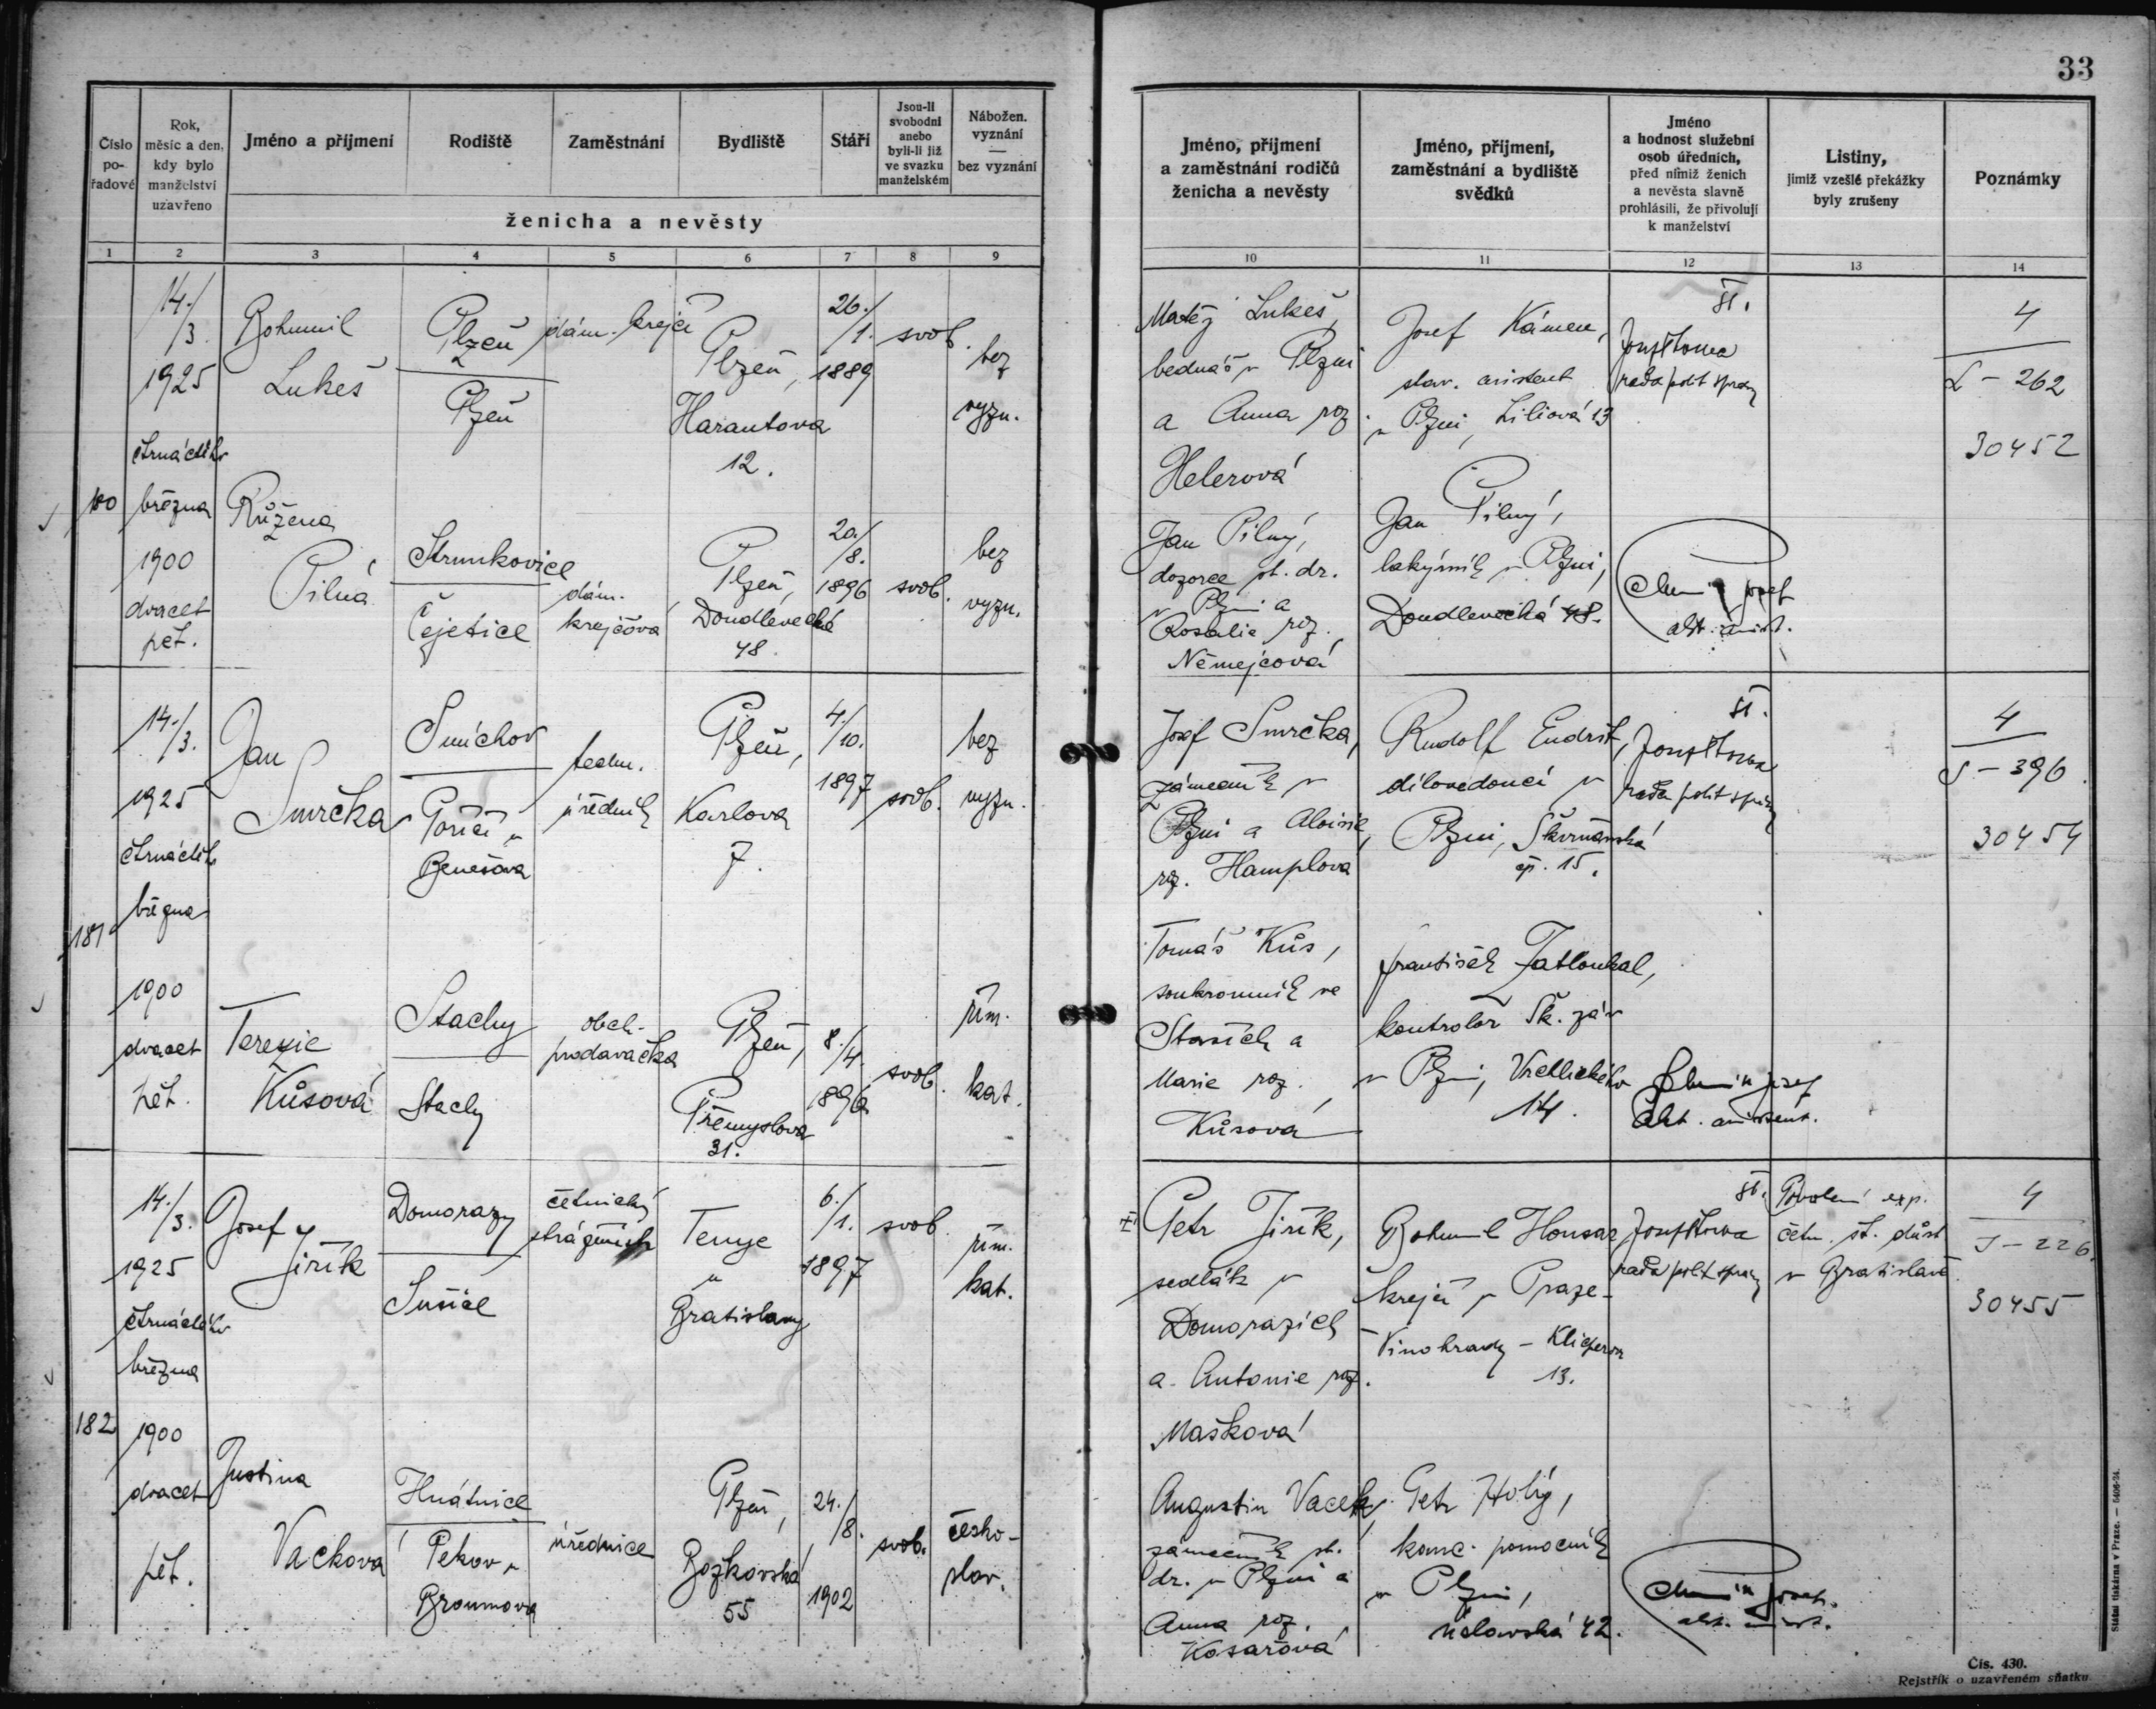 33
Číslo pořadové
Rok, měsíc a den, kdy bylo manželství uzavřeno
Jméno a příjmení
Rodiště
Zaměstnání
Bydliště
Stáří
Jsou-li svobodni anebo byli-li již ve svazku manželském
Nábožen. vyznání — bez vyznání
ženicha a nevěsty
Jméno, příjmení a zaměstnání rodičů ženicha a nevěsty
Jméno, příjmení, zaměstnání a bydliště svědků
Jméno a hodnost služební osob úředních, před nimiž ženich a nevěsta slavně prohlásili, že přivolují k manželství
Listiny, jimiž vzešlé překážky byly zrušeny
Poznámky
1 2 3 4 5 6 7 8 9 10 11 12 13 14
180
14./3.
1925
čtrnáctého
března
1900
dvacet
pět.
Bohumil
Lukeš
Plzeň
Plzeň
dám. krejčí
Plzeň,
Harantova
12.
26./1.
1889
svob.
bez
vyzn.
Matěj Lukeš,
bednář v Plzni
a Anna roz.
Helerová
Josef Kámen,
stav. asistent
v Plzni, Liliová 13
rada polit správy
4
L - 262
30452
Růžena
Pilná
Strunkovice
Čejetice
dám.
krejčová
Plzeň,
Doudlevecká
48.
20./8.
1896
svob.
bez
vyzn.
Jan Pilný,
dozorce st. dr.
v Plzni a
Rosalie roz.
Němejcová
Jan Pilný,
lakýrník v Plzni,
Doudlevecká 48.
Josef
181
14./3.
1925
čtrnáctého
března
1900
dvacet
pět.
Jan
Smrčka
Smíchov
Poříčí u
Benešova
techn.
úředník
Plzeň,
Karlova
7.
4./10.
1897
svob.
bez
vyzn.
Josef Smrčka,
zámečník v
Plzni a Aloisie,
roz. Hamplova
Rudolf Endršt,
dílovedoucí v
Plzni, Škvrňanská
čp. 15.
rada polit správy
4
S - 396
30454
Terezie
Kůsová
Stachy
Stachy
obch.
prodavačka
Plzeň,
Přemyslova
31.
8./4.
1896
svob.
řím.
kat.
Tomáš Kůs,
soukromník ve
Staších a
Marie roz.
Kůsová
František Zatloukal,
kontrolor Šk. záv
v Plzni, Vrchlického
14.
Josef
182
14./3.
1925
čtrnáctého
března
1900
dvacet
pět.
Josef
Jiřík
Domorazy
Sušice
četnický
strážmistr
u
Bratislavy
6./1.
1897
svob.
řím.
kat.
Petr Jiřík,
sedlák v
Domorazích
a Antonie roz.
Mašková
Bohumil Honsar
krejčí v Praze-
Vinohrady - Klicperova
13.
rada polit správy
Povolení exp.
četn. st. důst
v Bratislavě.
4
J - 226.
30455
Justina
Vacková
Hnátnice
Pekov u
Broumova
úřednice
Plzeň,
Božkovská
55
24./8.
1902
svob.
česko-
slav.
Augustin Vacek,
zámečník st.
dr. v Plzni a
Anna roz.
Kosařová
Petr Holý,
kanc. pomocník
v Plzni,
42.
Josef
Státní tiskárna v Praze. — 5406-24.
Čís. 430.
Rejstřík o uzavřeném sňatku.